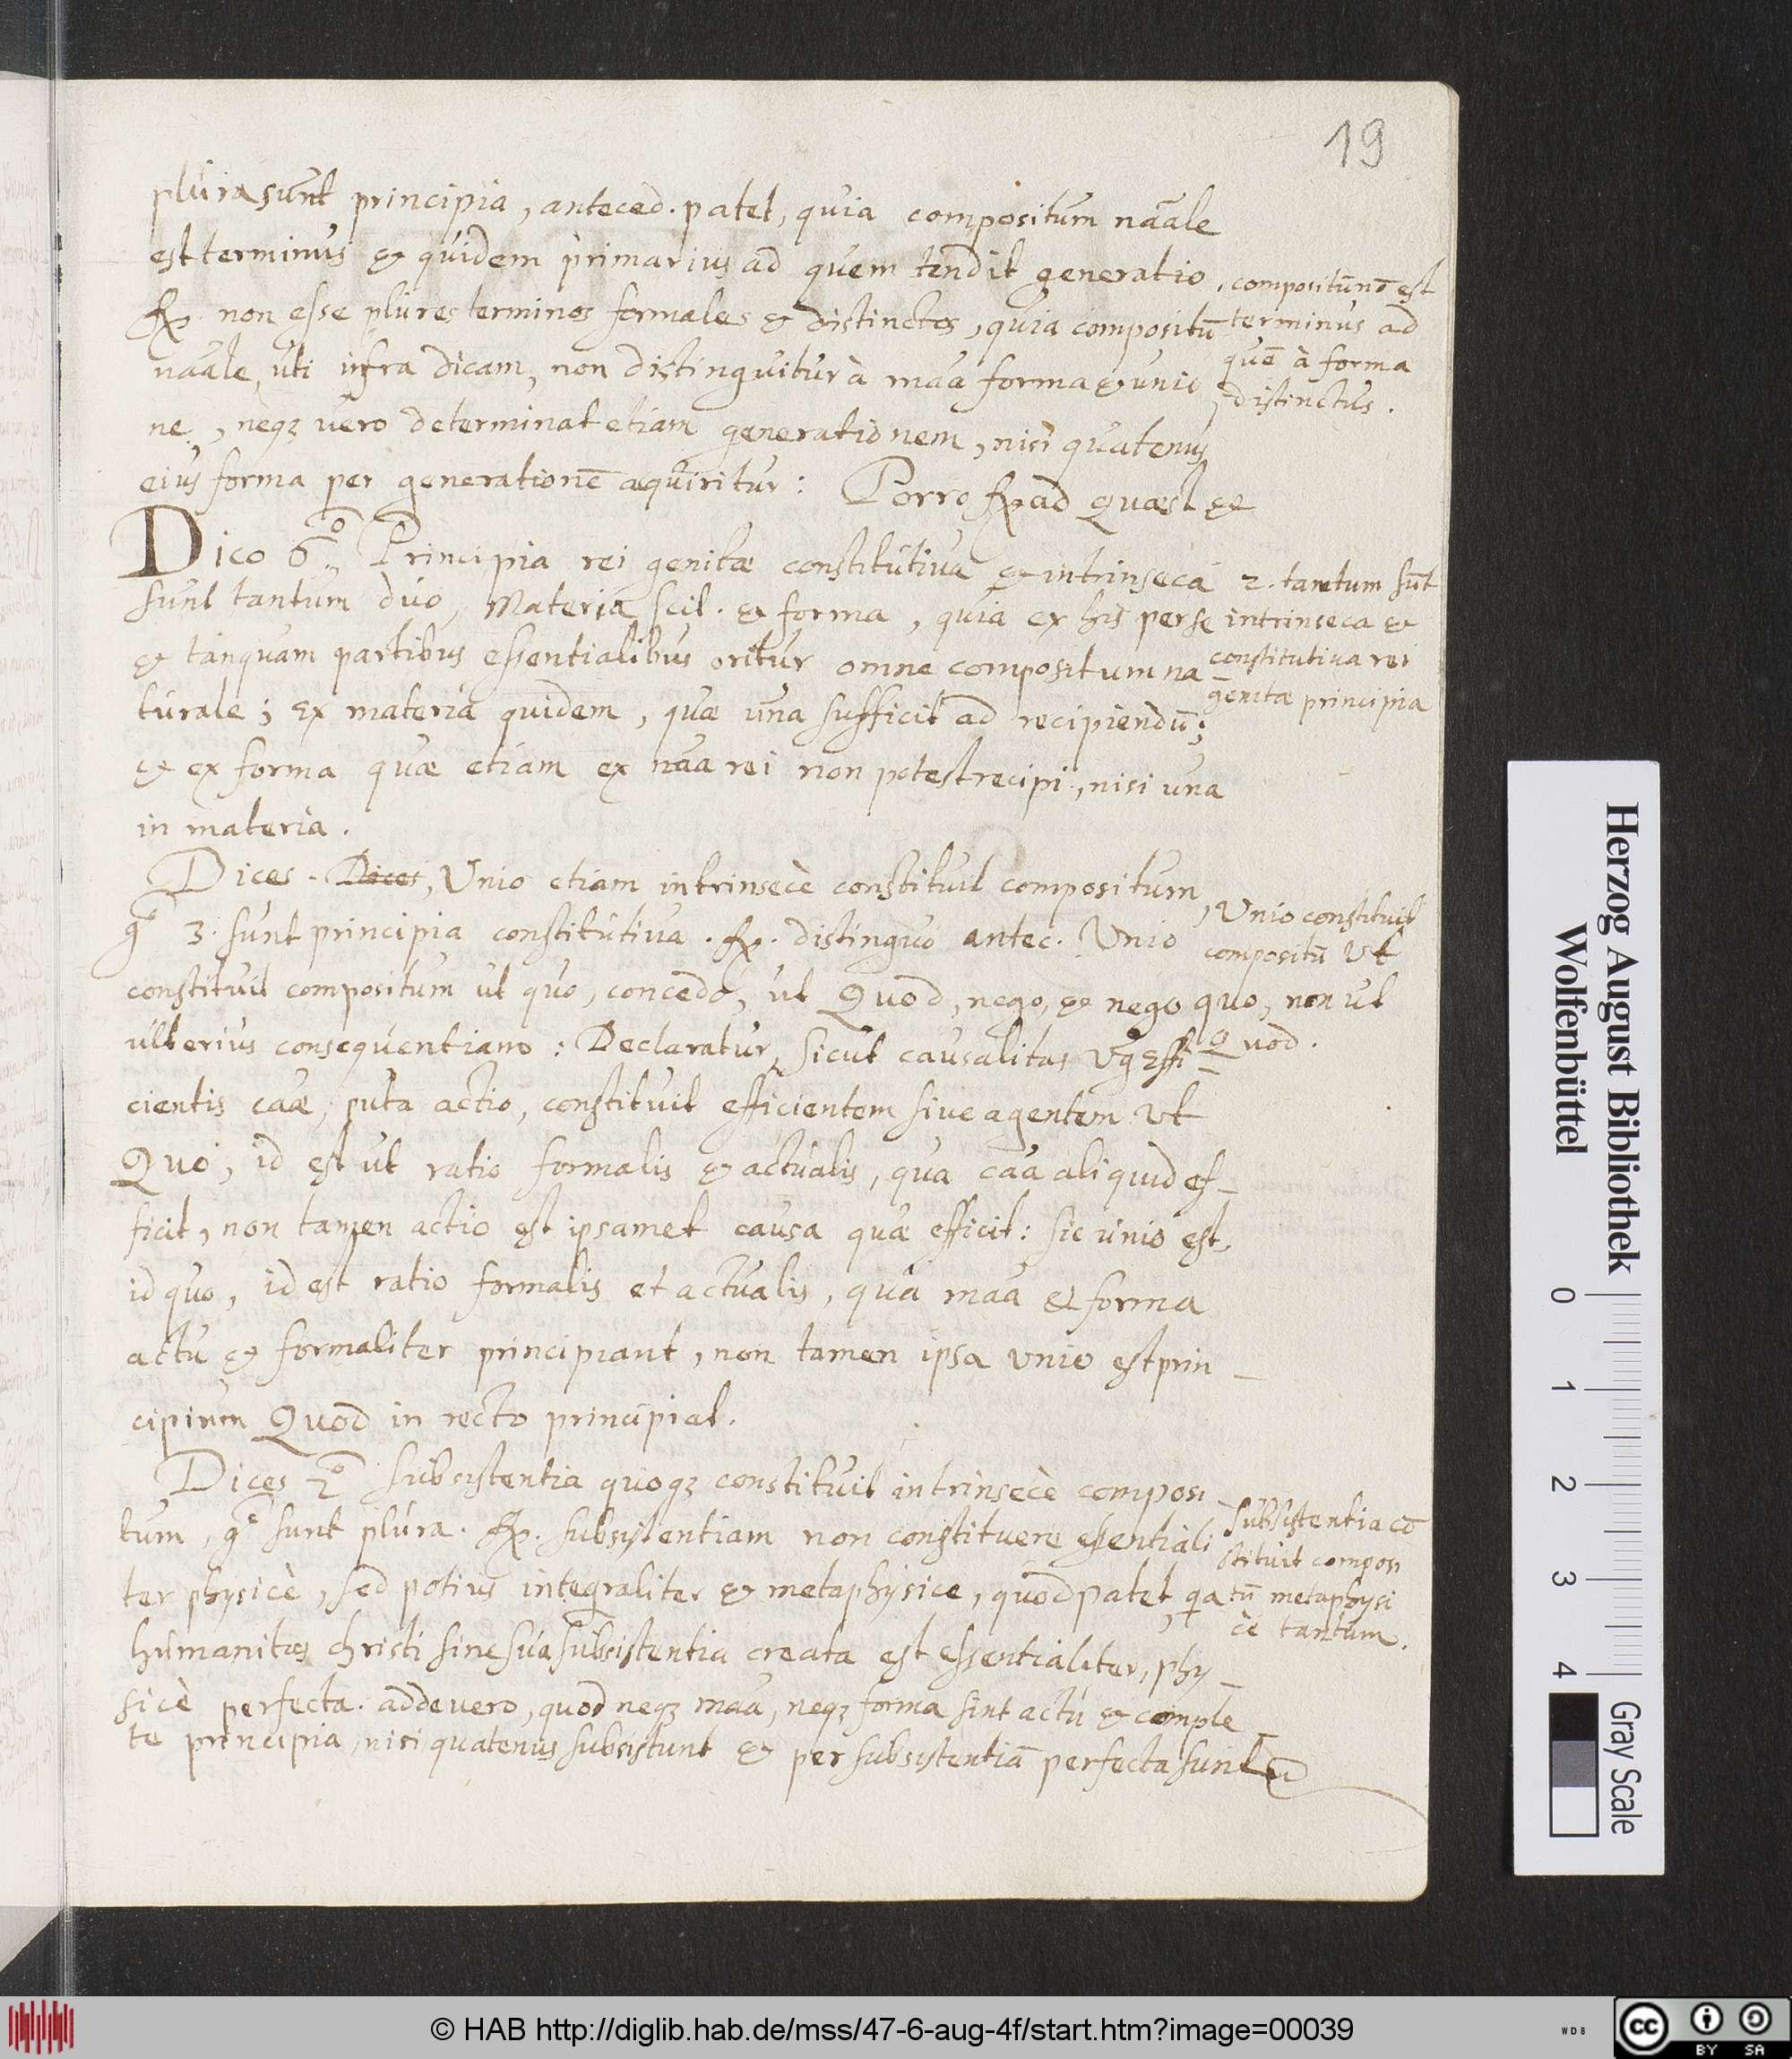 19
plura sunt principia, anteced. patet, quia compositum nāale
est terminus & quidem primarius ad quem tendit generatio
℞. non esse plures terminos formales & distinctos, quia compositū
nāale, uti infra dicam, non distinguitur à māa forma & unio
ne, neqȝ vero determinat etiam generationem, nisi quatenus
eius forma per generationē aquiritur: Porro ℞ ad Quæst &
, compositum est
terminus ad
quē à forma
distinctus.
Dico 6.º Principia rei genitæ constitutiva & intrinseca
sunt tantum duo, Materia scil. & forma, quia ex his per se
& tanquam partibus essentialibus oritur omne compositum na
turale; ex materia quidem, quæ una sufficit ad recipiendū;
& ex forma quæ etiam ex nāa rei non potest recipi, nisi una
in materia.
2. tantum sūt
intrinseca &
constitutiva rei
genitæ principia
Dices. Dices, Unio etiam intrinsecè constituit compositum,
gͦ 3. sunt principia constitutiva. ℞. distinguo antec. Unio
constituit compositum ut quo, concedo, ut Quod, nego, & nego
ulterius consequentiam: Declaratur, sicut causalitas vg Effi
cientis cāæ, puta actio, constituit efficientem sive agentem ut
Quo, id est ut ratio formalis & actualis, qua cāa aliquid ef-
ficit, non tamen actio est ipsamet causa quæ efficit: sic unio est
id quo, id est ratio formalis et actualis, quâ māa & forma
actu & formaliter principiant, non tamen ipsa unio est prin-
cipium Quod in recto principiat.
, Unio constituit
compositū ut
quo, non ut
Quod.
Dices 2º subsistentia quoqȝ constituit intrinsecè composi-
tum, gͦ sunt plura. ℞. subsistentiam non constituere essentiali
ter physicè, sed potius integraliter & metaphysice, quod patet, qa
humanitas christi sine sua subsistentia creata est essentialiter, phy-
sicè perfecta. adde vero, quod neqȝ māa, neqȝ forma sint actu & comple-
te principia, nisi quatenus subsistunt & per subsistentiā perfecta sunt
subsistentia cō
stituit composi
tū metaphysi
cè tantum.
Herzog August Bibliothek
Wolfenbüttel
0 1 2 3 4
Gray Scale
© HAB http://diglib.hab.de/mss/47-6-aug-4f/start.htm?image=00039
WDB
cc
BY SA